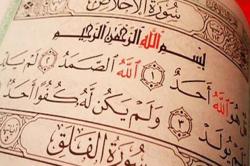 سُورَةُ الإِخْلَاصِ
بِسْمِ اللَّهِ الرَّحْمَٰنِ الرَّحِيمِ
هُوَ اللَّهُ أَحَدٌ ١ اللَّهُ الصَّمَدُ ٢ لَمْ يَلِدْ
يُولَدْ ٣ وَلَمْ يَكُن لَّهُ كُفُوًا أَحَدٌ
سُورَةُ الفَلَقِ